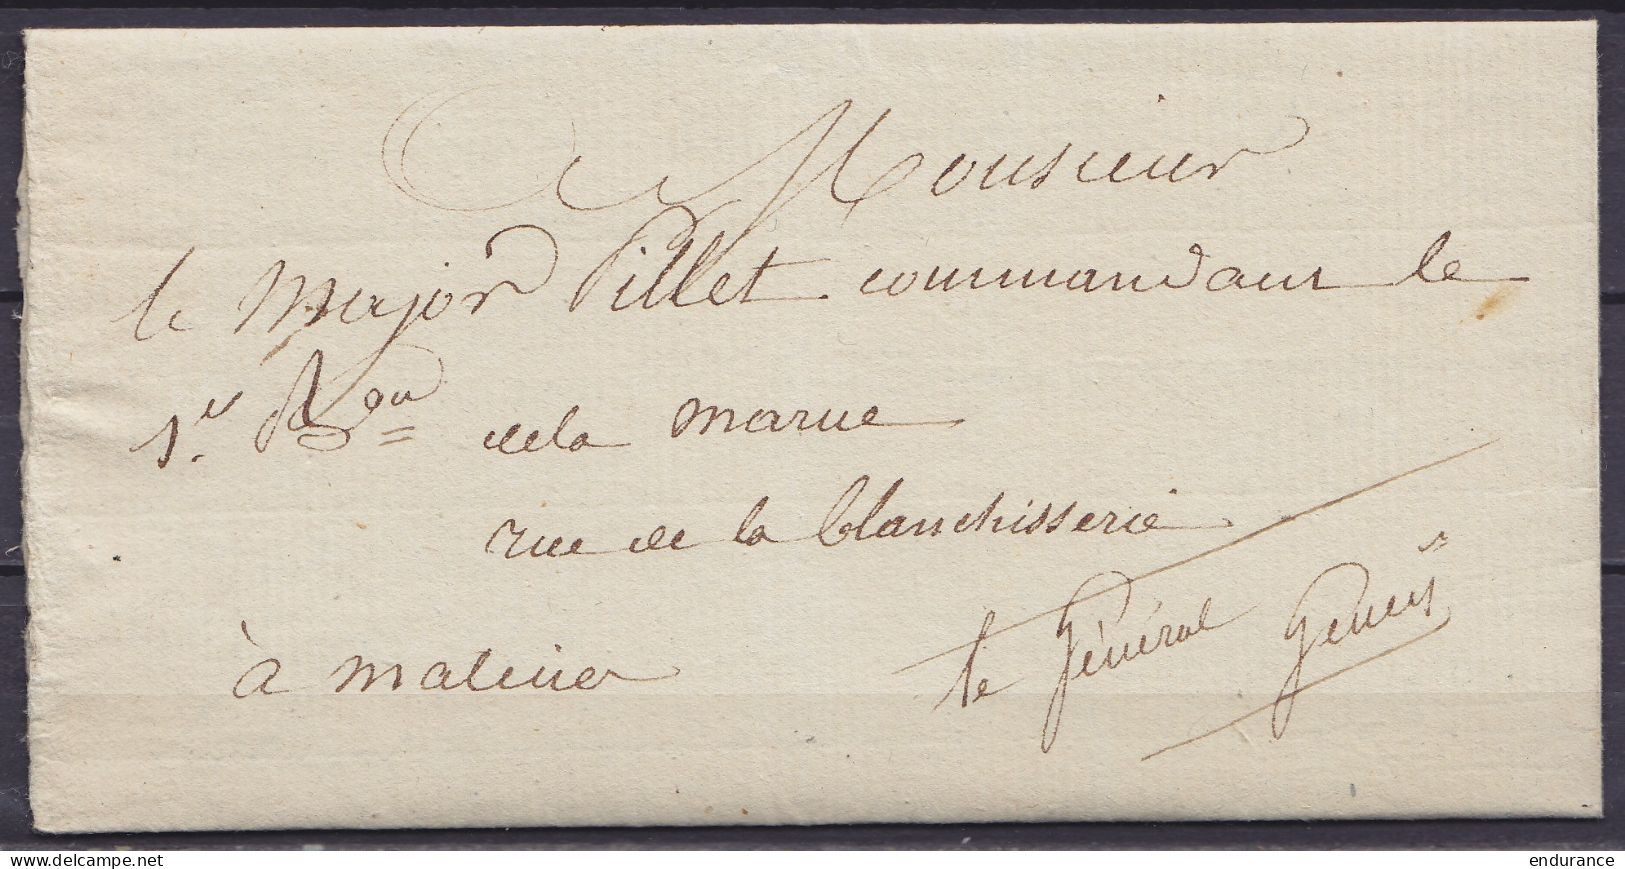 A Monsieur
le Major Pillet commandant le
1er Bon de la Marne
rue de la blanchisserie
à malines
le Général
delcampe.net
endurance